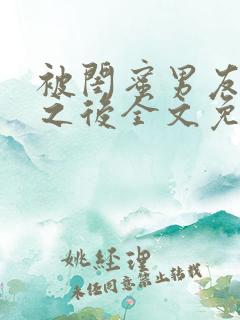 被閨蜜男友
之後全文免
姚經理
未經同意禁止轉載